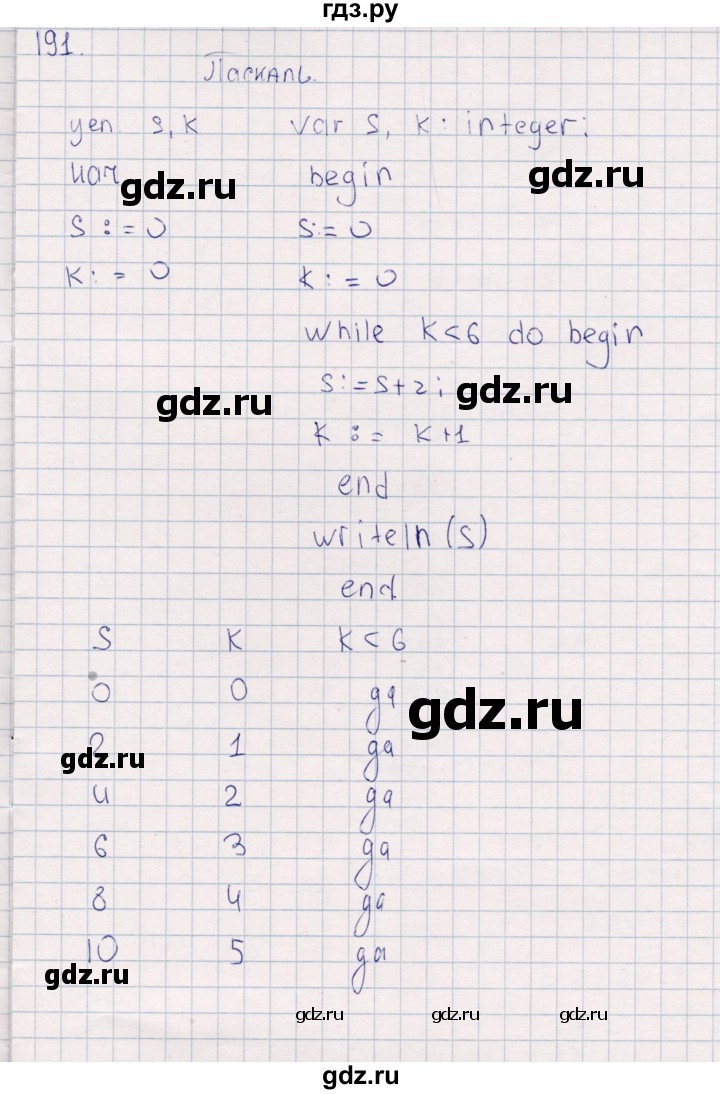 гдз.ру
191.
Паскаль.
цел s, k var s, k: integer;
нач begin
gdz.ru gdz.ru
s := 0 s:= 0
k := 0 k := 0
while k<6 do begin
s:=s+2;
gdz.ru gdz.ru
k := k+1
end
writeln(s)
end
S K K<6
0 0 да
gdz.ru
2 1 да
gdz.ru
4 2 да
6 3 да
8 4 да
10 5 да
gdz.ru
gdz.ru gdz.ru gdz.ru
gdz.ru